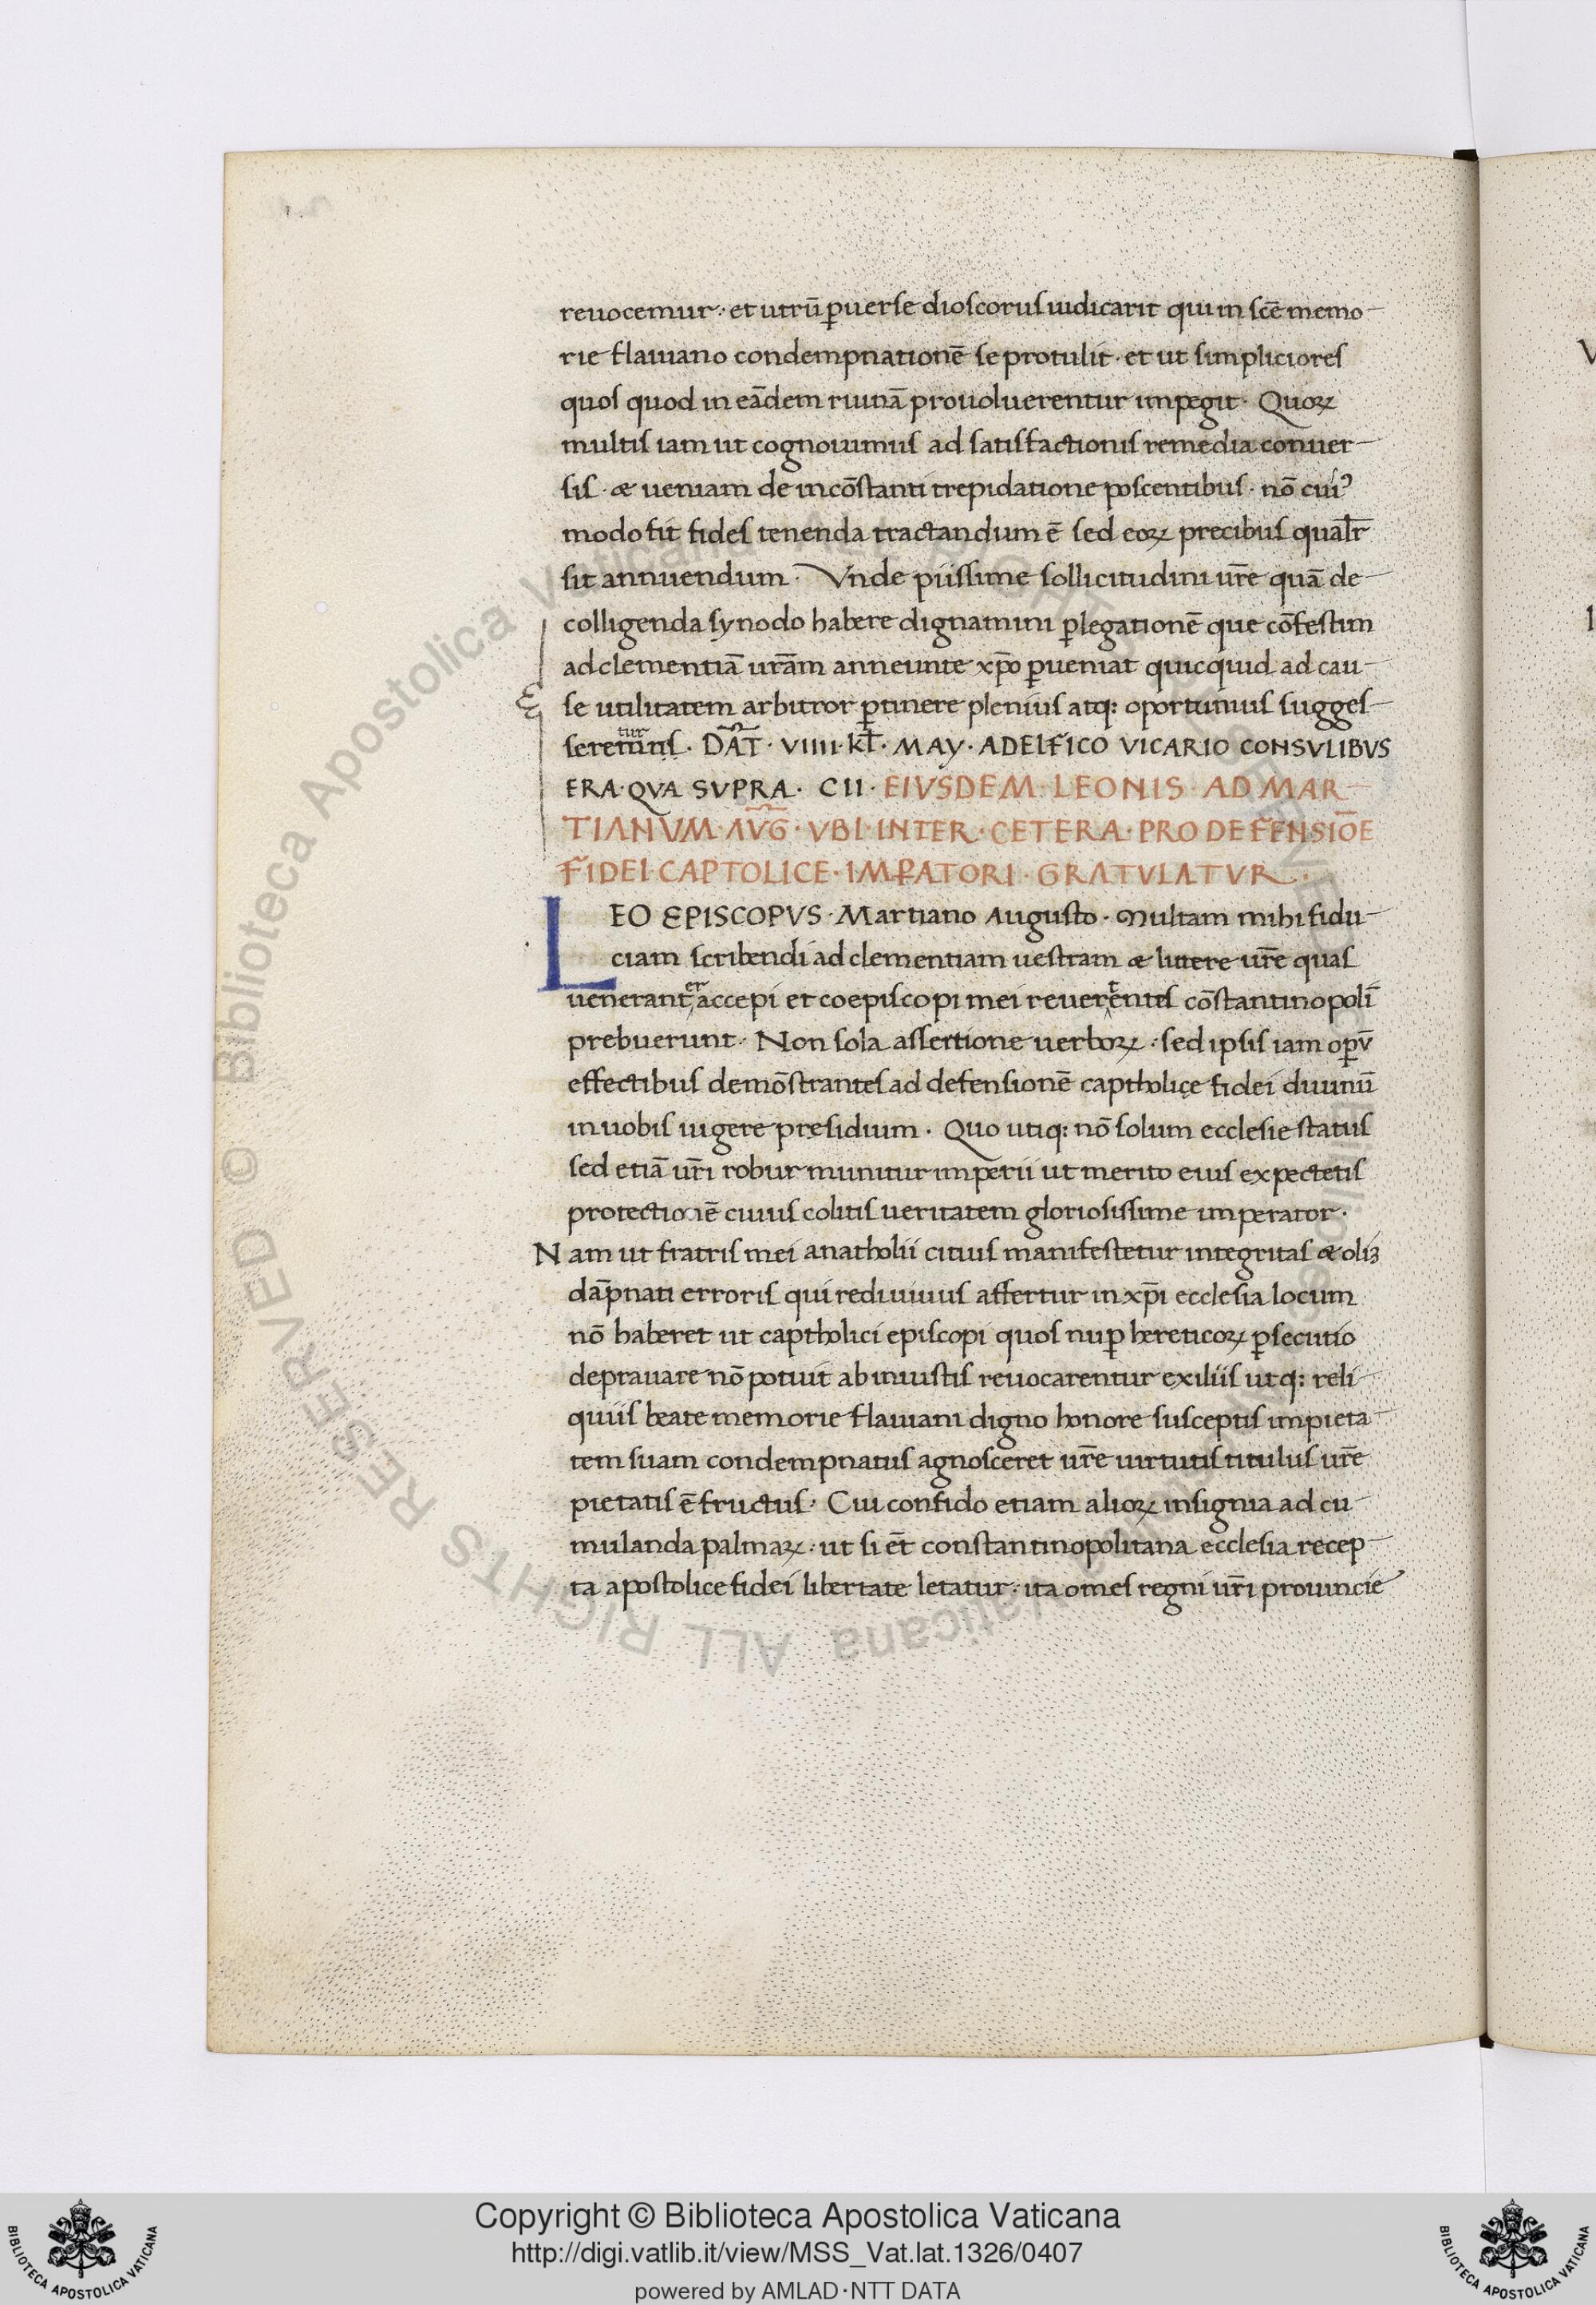 reuocemur · et utrū ꝑuerse dioscorus iudicarit qui in scē memo-
rie flauiano condempnationē se protulit · et ut simpliciores
quos quod in eādem ruinā prouoluerentur impegit · Quoꝝ
multis iam ut cognouimus ad satisfactionis remedia conuer-
sis · æ ueniam de incōstanti trepidatione poscentibus · nō cui᾽
modo sit fides tenenda tractandum ē sed eoꝝ precibus qualr̄
sit annuendum · Vnde piissime sollicitudini ur̄e quā de
colligenda synodo habere dignamini ꝑ legationē que cōfestim
ad clementiā urām annuente xp̄o ꝑueniat quicquid ad cau-
se utilitatem arbitror ꝑtinere plenius atq: oportunius sugges-
tur
seretuns · DAT̄ · VIIII · KL̄ · MAY · ADELFICO VICARIO CONSVLIBVS
ERA · QVA SVPRA · CII · EIVSDEM · LEONIS · AD MAR-
TIANVM · AVḠ · VBI · INTER · CETERA · PRO DEFENSIŌE
FIDEI · CAPTOLICE · IMꝐATORI · GRATVLATVR ·
LEO EPISCOPVS · Martiano Augusto · Multam mihi fidu-
ciam scribendi ad clementiam uestram æ littere ur̄e quas
uenerant er accepi et coepiscopi mei reuerentes cōstantinopolī
prebuerunt · Non sola assertione uerboꝝ · sed ipsis iam oꝑv̄
effectibus demōstrantes ad defensionē captholice fidei diuinū
in uobis uigere presidium · Quo utiq: nō solum ecclesie status
sed etiā ur̄i robur munitur imperii ut merito eius expectetis
protectionē cuius colitis ueritatem gloriosissime imperator ·
Nam ut fratris mei anatholii citius manifestetur integritas æ oliʒ
dāpnati erroris qui rediuiuus affertur in xp̄i ecclesia locum
nō haberet ut captholici episcopi quos nuꝑ hereticoꝝ ꝑsecutio
deprauare nō potuit ab iniustis reuocarentur exiliis utq: reli-
quiis beate memorie flauiani digno honore susceptis impieta-
tem suam condempnatus agnosceret ur̄e uirtutis titulus ur̄e
pietatis ē fructus · Cui confido etiam alioꝝ insignia ad cu-
mulanda palmaꝝ · ut si ēt constantinopolitana ecclesia recep-
ta apostolice fidei libertate letatur · ita omes regni ur̄i prouincie
Copyright © Biblioteca Apostolica Vaticana
http://digi.vatlib.it/view/MSS_Vat.lat.1326/0407
powered by AMLAD·NTT DATA
BIBLIOTECA APOSTOLICA VATICANA
BIBLIOTECA APOSTOLICA VATICANA
© Biblioteca Apostolica Vaticana ALL RIGHTS RESERVED
© Biblioteca Apostolica Vaticana ALL RIGHTS RESERVED